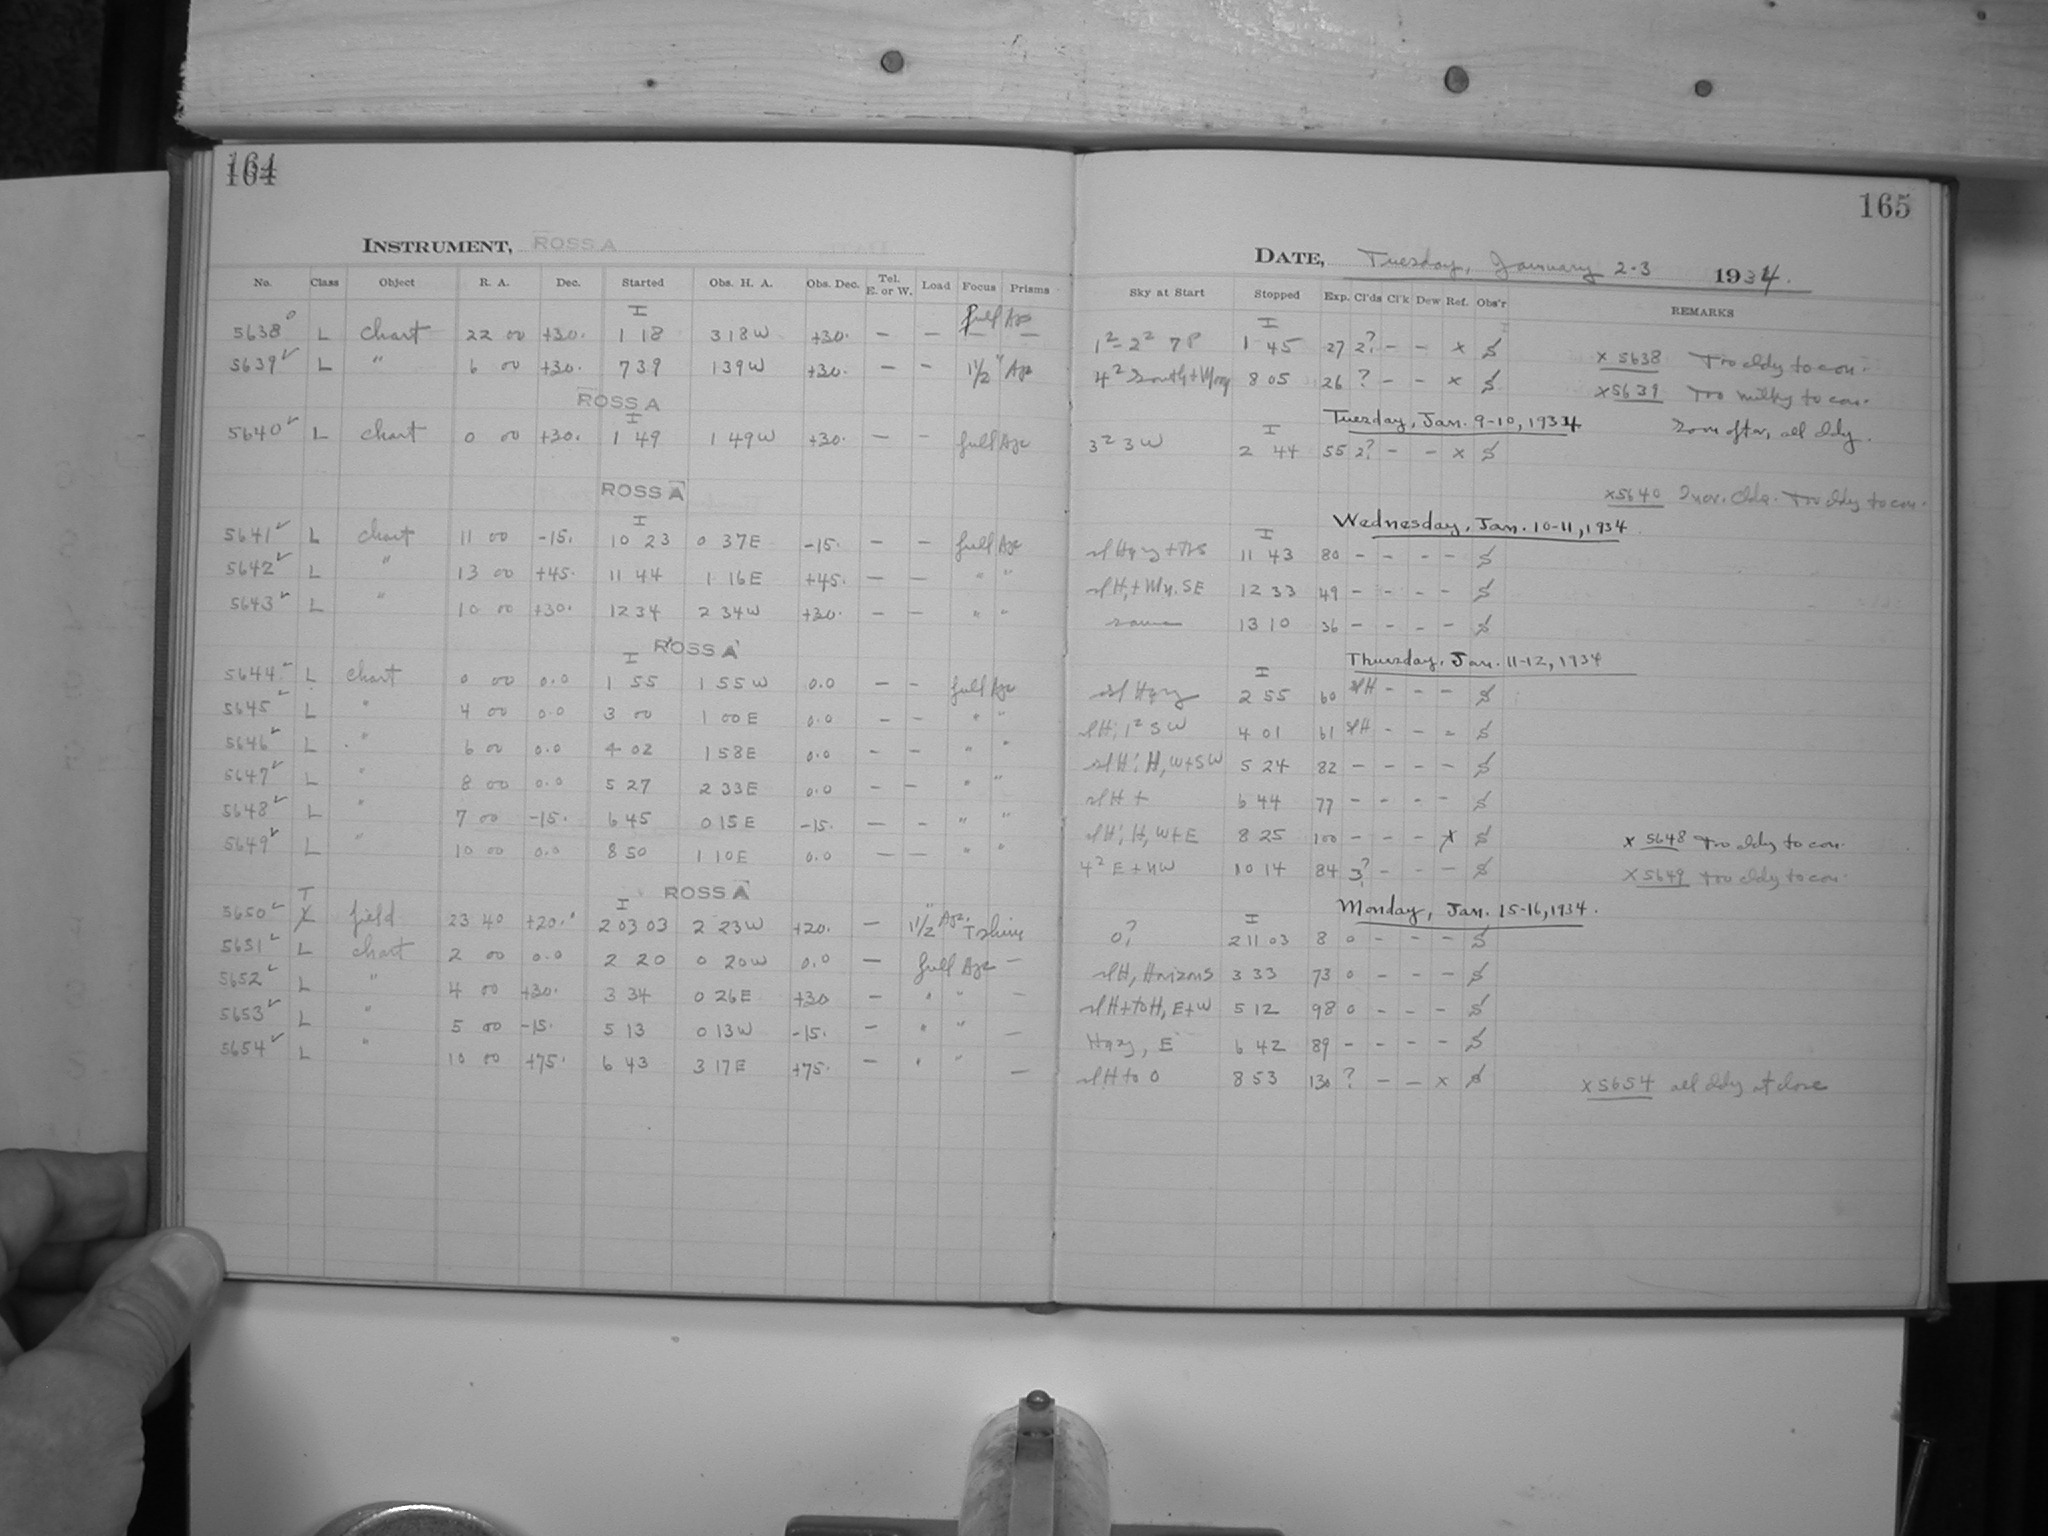 164
INSTRUMENT, ROSS A
No. Class Object R. A. Dec. Started Obs. H. A. Obs. Dec. Tel. E. or W. Load Focus Prisms
I full Ap
5638 L chart 22 00 +30. 1 18 3 18 W +30. — — — —
5639 L " 6 00 +30. 7 39 1 39 W +30. — — 1 1/2" Ap
ROSS A
I
5640 L chart 0 00 +30. 1 49 1 49 W +30. — — full Ap
ROSS A
I
5641 L chart 11 00 -15. 10 23 0 37 E -15. — — full Ap
5642 L " 13 00 +45. 11 44 1 16 E +45. — — " "
5643 L " 10 00 +30. 12 34 2 34 W +30. — — " "
ROSS A
I
5644 L chart 0 00 0.0 1 55 1 55 W 0.0 — — full Ap
5645 L " 4 00 0.0 3 00 1 00 E 0.0 — — " "
5646 L " 6 00 0.0 4 02 1 58 E 0.0 — — " "
5647 L " 8 00 0.0 5 27 2 33 E 0.0 — — " "
5648 L " 7 00 -15. 6 45 0 15 E -15. — — " "
5649 L " 10 00 0.0 8 50 1 10 E 0.0 — — " "
ROSS A
T I
5650 field 23 40 +20. 2 03 03 2 23 W +20. — 1 1/2" Ap.
5651 L chart 2 00 0.0 2 20 0 20 W 0.0 — full Ap —
5652 L " 4 00 +30. 3 34 0 26 E +30 — " " —
5653 L " 5 00 -15. 5 13 0 13 W -15. — " " —
5654 L " 10 00 +75. 6 43 3 17 E +75. — " " —
165
DATE, Tuesday, January 2-3 1934.
Sky at Start Stopped Exp. Cl'ds Cl'k Dew Ref. Obs'r REMARKS
I
1²-2² 7P 1 45 27 2? — — x S x 5638 Too cldy to con.
4² South + 8 05 26 ? — — x S x 5639 Too milky to con.
Tuesday, Jan. 9-10, 1934 Soon after, all cldy.
I
3² 3W 2 44 55 2? — — x S
x 5640 Incr. clds. Too cldy to con.
Wednesday, Jan. 10-11, 1934
I
sl Hazy 11 43 80 — — — — S
sl H, + My. SE 12 33 49 — — — — S
same 13 10 36 — — — — S
Thursday, Jan. 11-12, 1934
I
sl Hazy 2 55 60 sl H — — — S
sl H; 1² SW 4 01 61 sl H — — — S
sl H; H, W+SW 5 24 82 — — — — S
sl H + 6 44 77 — — — — S
sl H; H, W+E 8 25 100 — — — x S x 5648 Too cldy to con.
4² E + NW 10 14 84 3? — — — S x 5649 Too cldy to con.
Monday, Jan. 15-16, 1934.
I
0? 2 11 03 8 0 — — — S
sl H, Horizons 3 33 73 0 — — — S
sl H + to H, E+W 5 12 98 0 — — — S
Hazy, E 6 42 89 — — — — S
sl H to 0 8 53 130 ? — — x S x 5654 all cldy at close